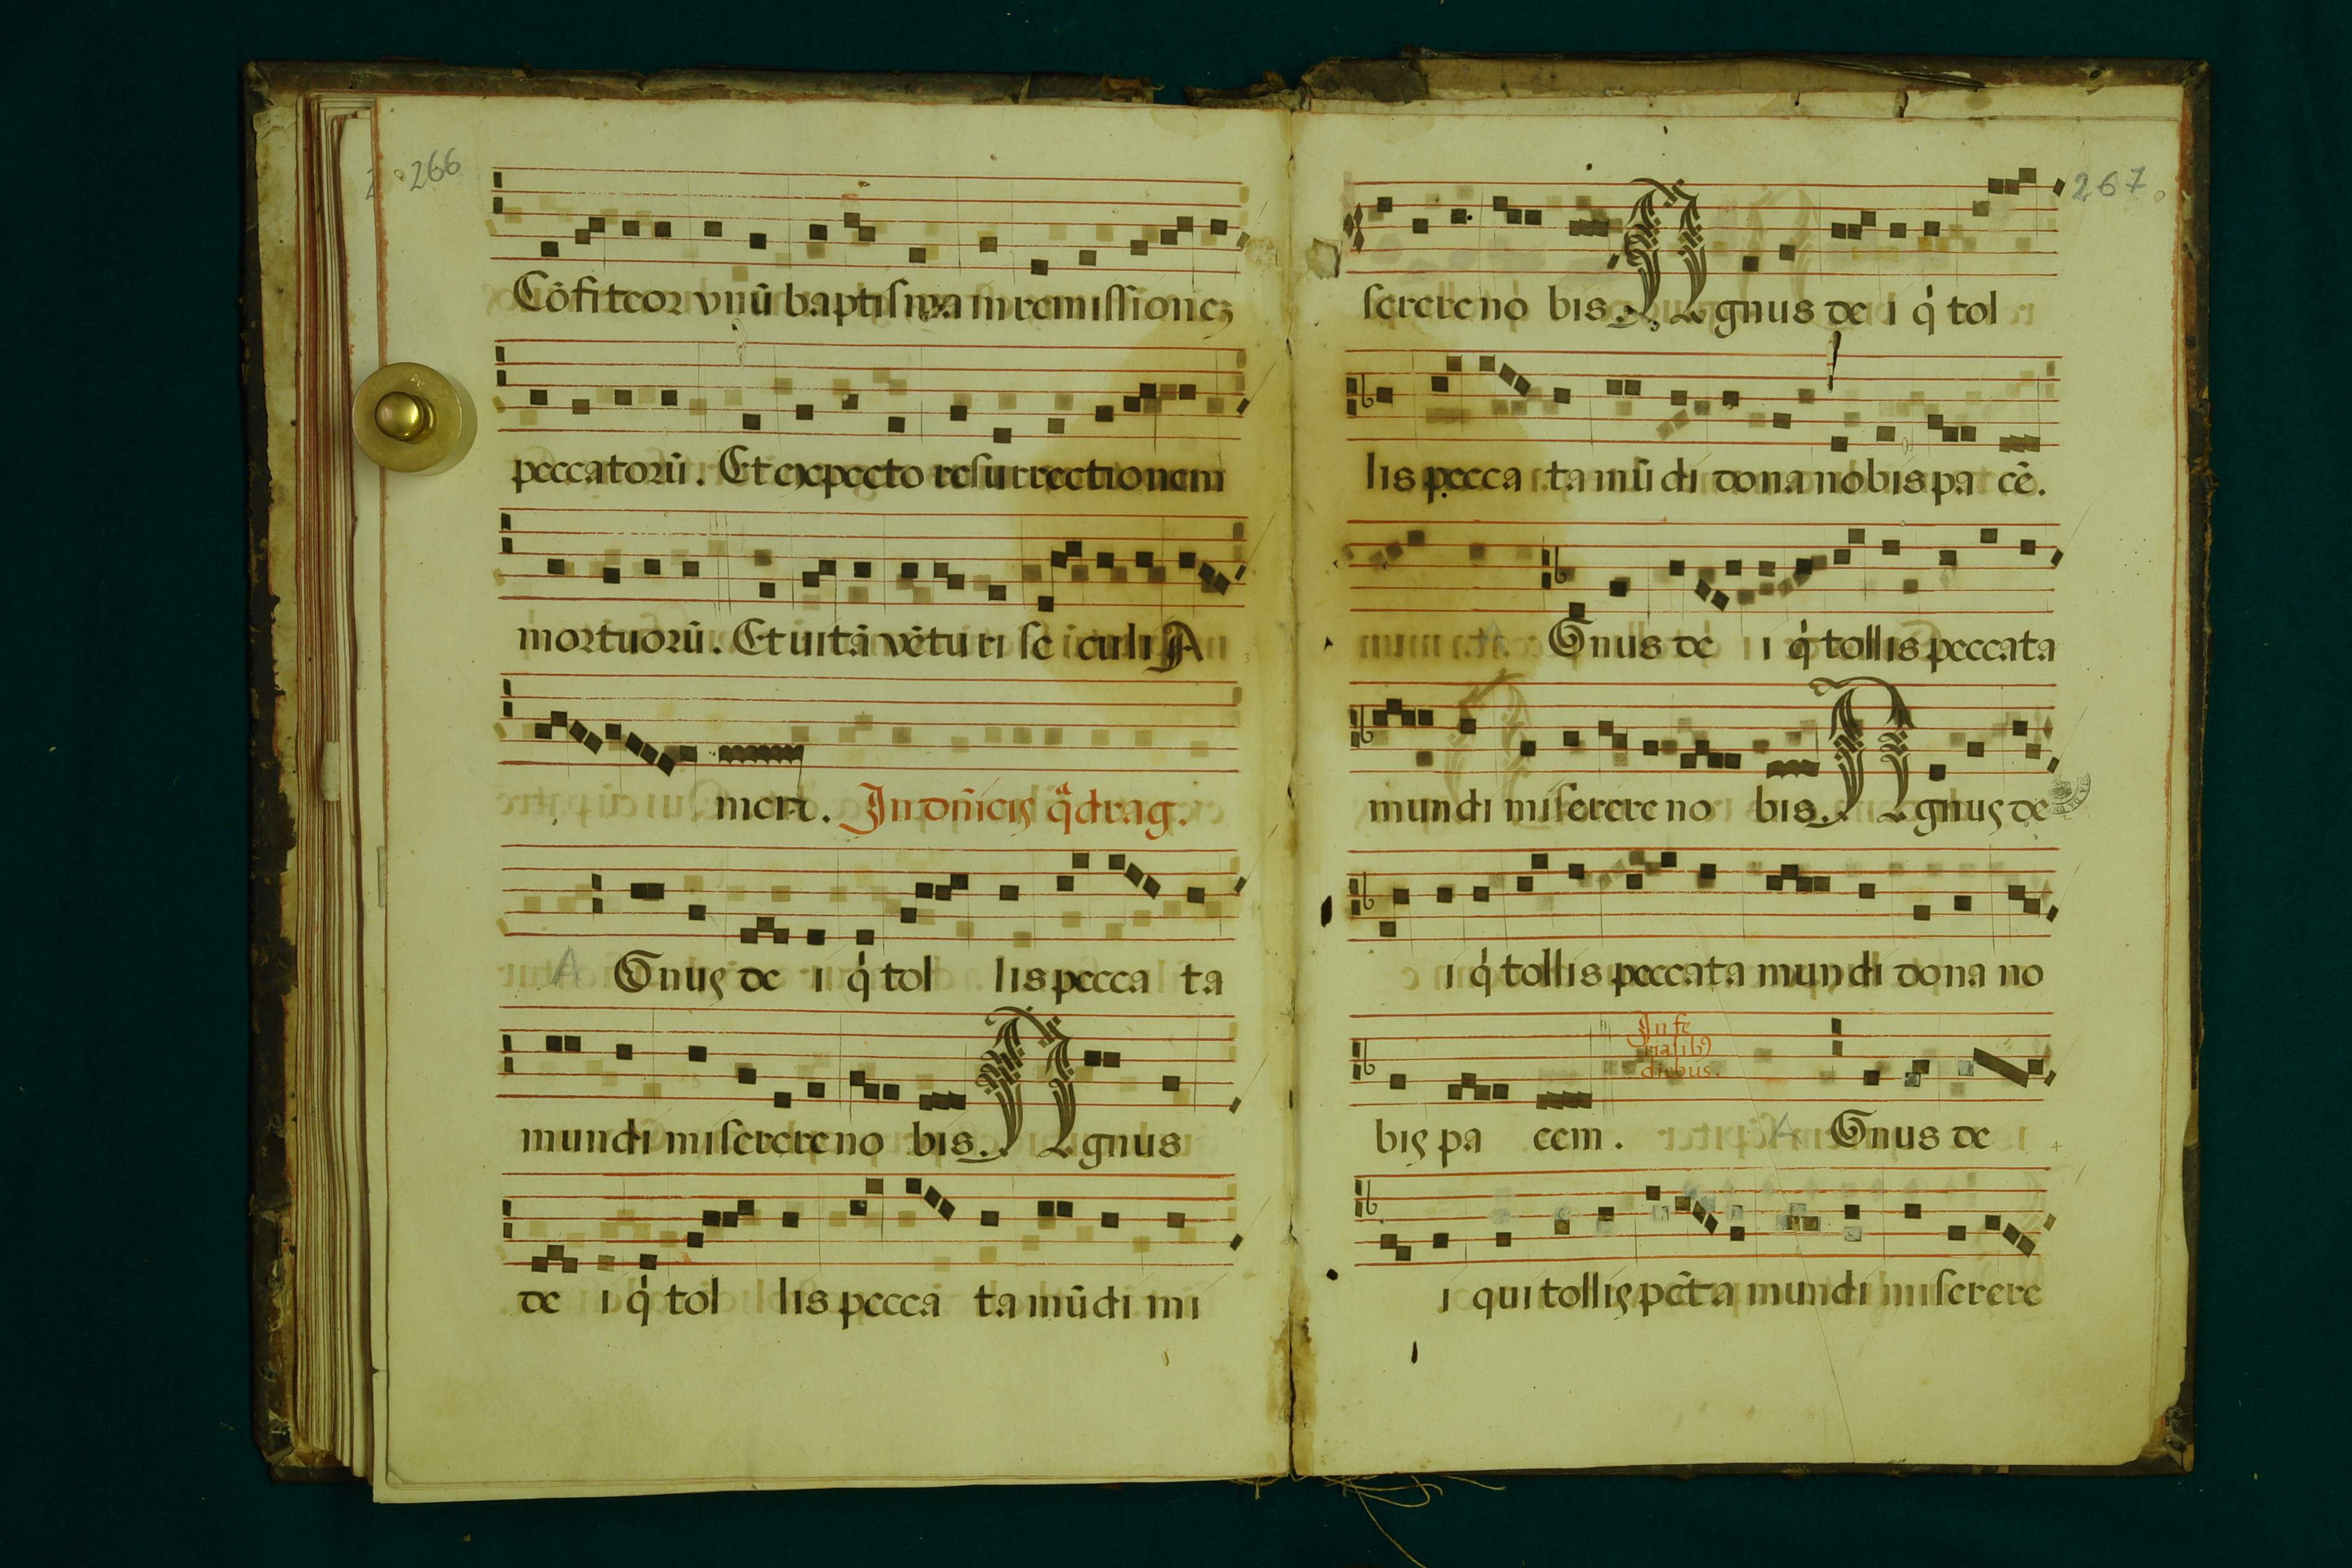 266
Cōfiteor vnū baptisma in remissionez
peccatorū. Et expecto resurrectionem
mortuorū. Et uitā vētu ri se culi A
men. In dñicis q̄drag.
A Gnus de i q̇ tol lis pecca ta
mundi miserere no bis. Agnus
de i q̇ tol lis pecca ta mūdi mi
267
serere no bis. Agnus de i q̇ tol
lis pecca ta mūdi dona nobis pa cē.
Gnus de i q̇ tollis peccata
mundi miserere no bis. Agnus de
i q̇ tollis peccata mundi dona no
In fe
rialibꝰ
diebus.
bis pa cem. A Gnus de
i qui tollis pc̄ta mundi miserere